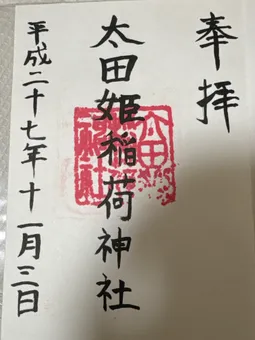 奉拝
太田姫稲荷神社
平成二十七年十一月三日